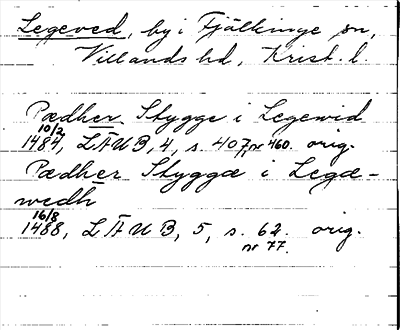 Legeved, by i Fjälkinge sn,
Villands hd, Krist. l.
Pædher Stygge i Legewid
10/2 1484, LÄUB, 4, s. 407, nr 460. orig.
Pædher Styggæ i Legæ-
wedh
16/8 1488, LÄUB, 5, s. 62. orig.
nr 77.